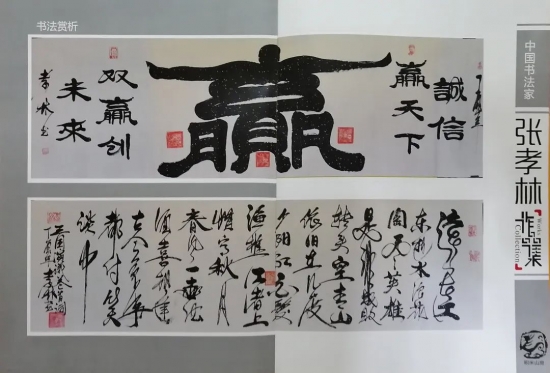 书法赏析
誠信
赢天下
赢
双赢创
未來
孝林书
滚滚长江
东逝水浪花
淘尽英雄
是非成败
转头空青山
依旧在几度
夕阳红白发
渔樵江渚上
惯看秋月
春风一壶浊
酒喜相逢
古今多少事
都付笑
谈中
中国书法家
张孝林
作品集
Works Collection